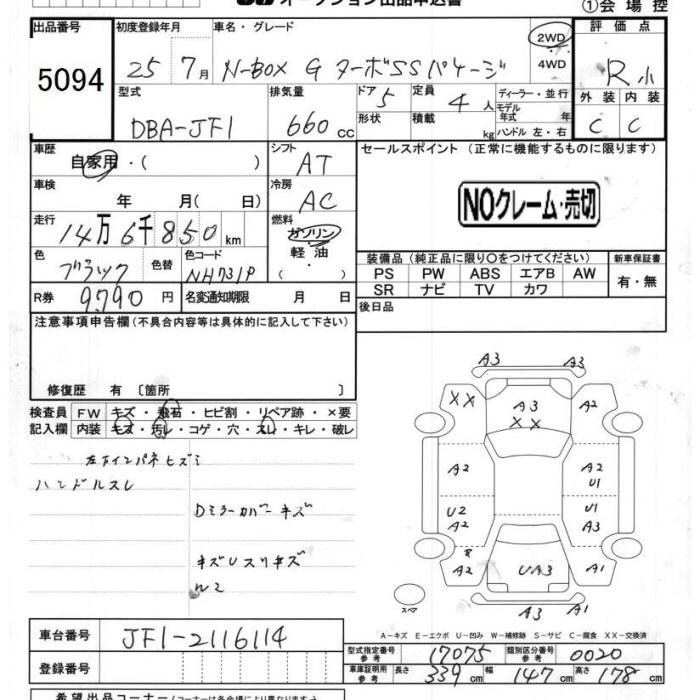 オークション出品申込書
①会場控
出品番号
5094
初度登録年月
25 7月
車名・グレード
N-BOX G ターボSSパケージ
2WD
4WD
評価点
R 小
型式
DBA-JF1
排気量
660 cc
ドア 5
形状
定員 4 人
積載 kg
ディーラー・並行
モデル年式 年
ハンドル 左・右
外装 内装
C C
車歴
自家用・( )
シフト
AT
セールスポイント (正常に機能するものに限ります)
NOクレーム・売切
車検
年 月( 日)
冷房
AC
走行
14万6千850km
燃料
ガソリン
軽油
( )
色
ブラック
色替
色コード
NH731P
装備品(純正品に限り○をつけてください)
新車保証書
PS PW ABS エアB AW
SR ナビ TV カワ
有・無
R券 9,790円
名変通知期限 月 日
後日品
注意事項申告欄(不具合内容等は具体的に記入して下さい)
修復歴 有〔箇所 〕
検査員
記入欄
FW キズ・飛石・ヒビ割・リペア跡・×要
内装 キズ・汚レ・コゲ・穴・スレ・キレ・破レ
左右インパネヒズミ
ハンドルスレ
Dミラーカバーキズ
キズUスリキズ
A3 A3
XX A3 A2
XX
A2 A2
U1
U2 U1
A2 A3
A2 UA3 A1
スペ
A3 A1
A-キズ E-エクボ U-凹み W-補修跡 S-サビ C-腐食 XX-交換済
車台番号 JF1-2116114
登録番号
型式指定番号 参考 17075
類別区分番号 参考 0020
車庫証明用 参考 長さ 339cm 幅 147cm 高さ 178cm
希望出品コーナー(出品コーナーは各会場により異なります)